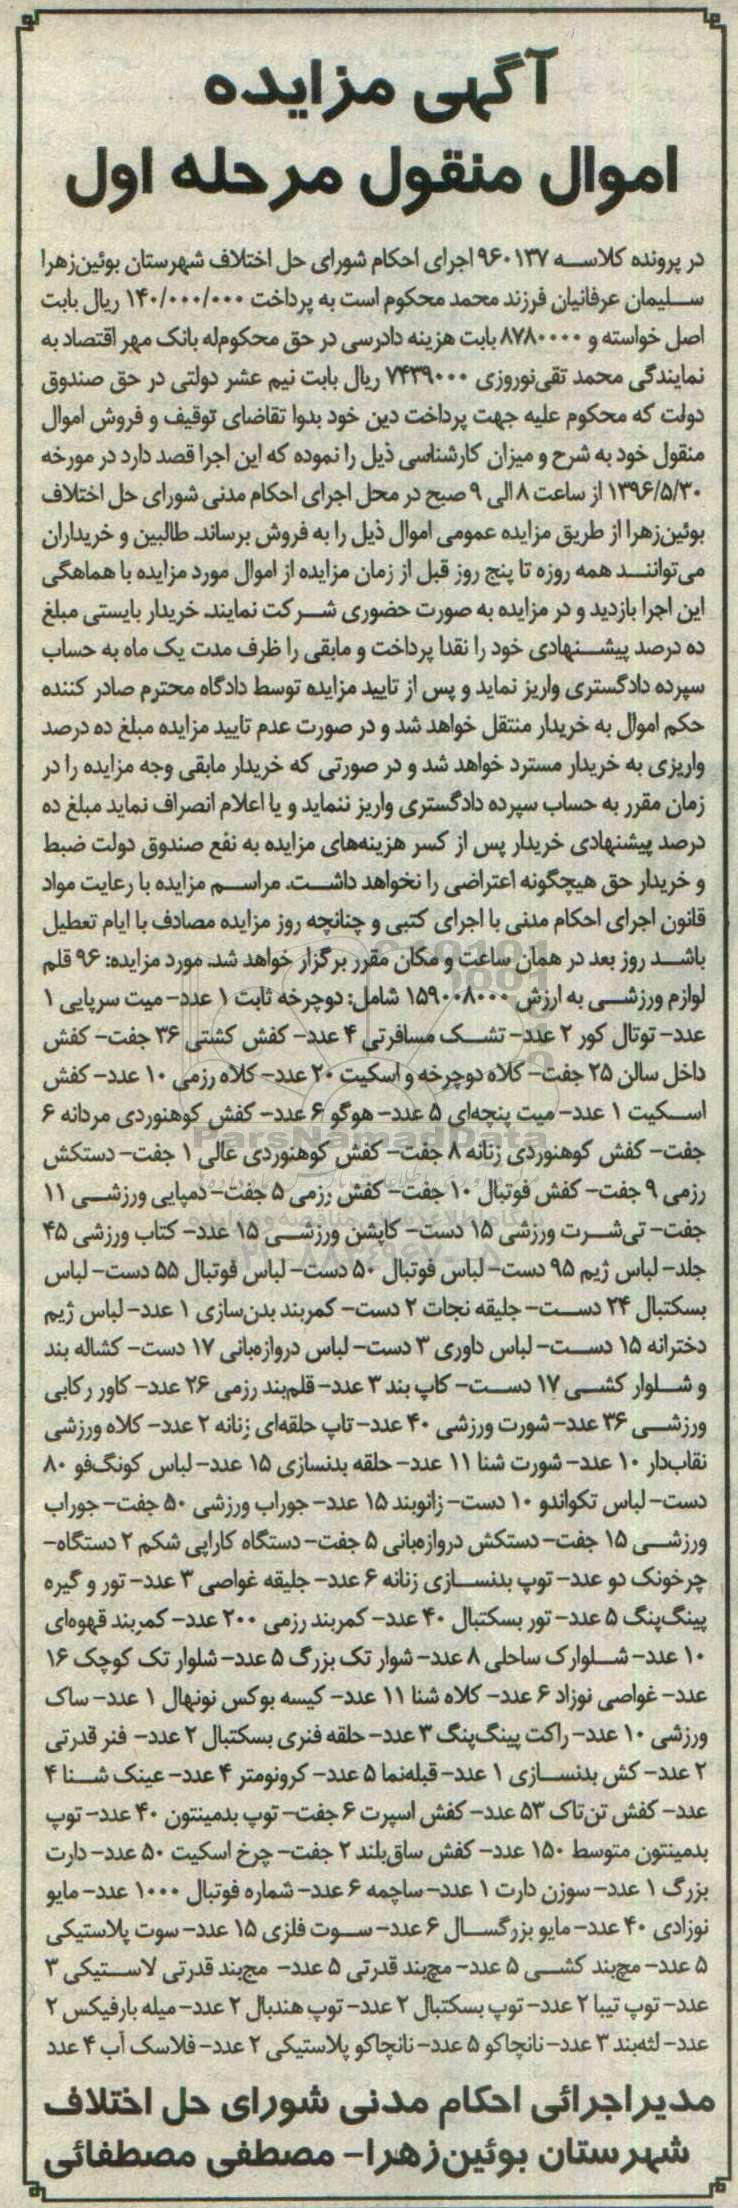 آگهی مزایده
اموال منقول مرحله اول
در پرونده کلاســه ۹۶۰۱۳۷ اجرای احکام شورای حل اختلاف شهرستان بوئین‌زهرا
سـلیمان عرفانیان فرزند محمد محکوم است به پرداخت ۱۴۰/۰۰۰/۰۰۰ ریال بابت
اصل خواسته و ۸۷۸۰۰۰۰ بابت هزینه دادرسی در حق محکوم‌له بانک مهر اقتصاد به
نمایندگی محمد تقی‌نوروزی ۷۴۳۹۰۰۰ ریال بابت نیم عشر دولتی در حق صندوق
دولت که محکوم علیه جهت پرداخت دین خود بدوا تقاضای توقیف و فروش اموال
منقول خود به شرح و میزان کارشناسی ذیل را نموده که این اجرا قصد دارد در مورخه
۱۳۹۶/۵/۳۰ از ساعت ۸ الی ۹ صبح در محل اجرای احکام مدنی شورای حل اختلاف
بوئین‌زهرا از طریق مزایده عمومی اموال ذیل را به فروش برساند. طالبین و خریداران
می‌تواننــد همه روزه تا پنج روز قبل از زمان مزایده از اموال مورد مزایده با هماهگی
این اجرا بازدید و در مزایده به صورت حضوری شــرکت نمایند. خریدار بایستی مبلغ
ده درصد پیشــنهادی خود را نقدا پرداخت و مابقی را ظرف مدت یک ماه به حساب
سپرده دادگستری واریز نماید و پس از تایید مزایده توسط دادگاه محترم صادر کننده
حکم اموال به خریدار منتقل خواهد شد و در صورت عدم تایید مزایده مبلغ ده درصد
واریزی به خریدار مسترد خواهد شد و در صورتی که خریدار مابقی وجه مزایده را در
زمان مقرر به حساب سپرده دادگستری واریز ننماید و یا اعلام انصراف نماید مبلغ ده
درصد پیشنهادی خریدار پس از کسر هزینه‌های مزایده به نفع صندوق دولت ضبط
و خریدار حق هیچگونه اعتراضی را نخواهد داشــت. مراســم مزایده با رعایت مواد
قانون اجرای احکام مدنی با اجرای کتبی و چنانچه روز مزایده مصادف با ایام تعطیل
باشــد روز بعد در همان ساعت و مکان مقرر برگزار خواهد شد. مورد مزایده: ۹۶ قلم
لوازم ورزشــی به ارزش ۱۵۹۰۰۸۰۰۰ شامل: دوچرخه ثابت ۱ عدد- میت سرپایی ۱
عدد- توتال کور ۲ عدد- تشــک مسافرتی ۴ عدد- کفش کشتی ۳۶ جفت- کفش
داخل سالن ۲۵ جفت- کلاه دوچرخه و اسکیت ۲۰ عدد- کلاه رزمی ۱۰ عدد- کفش
اســکیت ۱ عدد- میت پنچه‌ای ۵ عدد- هوگو ۶ عدد- کفش کوهنوردی مردانه ۶
جفت- کفش کوهنوردی زنانه ۸ جفت- کفش کوهنوردی عالی ۱ جفت- دستکش
رزمی ۹ جفت- کفش فوتبال ۱۰ جفت- کفش رزمی ۵ جفت- دمپایی ورزشــی ۱۱
جفت- تی‌شــرت ورزشی ۱۵ دست- کاپشن ورزشــی ۱۵ عدد- کتاب ورزشی ۴۵
جلد- لباس ژیم ۹۵ دست- لباس فوتبال ۵۰ دست- لباس فوتبال ۵۵ دست- لباس
بسکتبال ۲۴ دســت- جلیقه نجات ۲ دست- کمربند بدن‌سازی ۱ عدد- لباس ژیم
دخترانه ۱۵ دســت- لباس داوری ۳ دست- لباس دروازه‌بانی ۱۷ دست- کشاله بند
و شــلوار کشــی ۱۷ دســت- کاپ بند ۳ عدد- قلم‌بند رزمی ۲۶ عدد- کاور رکابی
ورزشــی ۳۶ عدد- شورت ورزشی ۴۰ عدد- تاپ حلقه‌ای زنانه ۲ عدد- کلاه ورزشی
نقاب‌دار ۱۰ عدد- شورت شنا ۱۱ عدد- حلقه بدنسازی ۱۵ عدد- لباس کونگ‌فو ۸۰
دست- لباس تکواندو ۱۰ دست- زانوبند ۱۵ عدد- جوراب ورزشی ۵۰ جفت- جوراب
ورزشــی ۱۵ جفت- دستکش دروازه‌بانی ۵ جفت- دستگاه کارایی شکم ۲ دستگاه-
چرخونک دو عدد- توپ بدنســازی زنانه ۶ عدد- جلیقه غواصی ۳ عدد- تور و گیره
پینگ‌پنگ ۵ عدد- تور بسکتبال ۴۰ عدد- کمربند رزمی ۲۰۰ عدد- کمربند قهوه‌ای
۱۰ عدد- شــلوارک ساحلی ۸ عدد- شوار تک بزرگ ۵ عدد- شلوار تک کوچک ۱۶
عدد- غواصی نوزاد ۶ عدد- کلاه شنا ۱۱ عدد- کیسه بوکس نونهال ۱ عدد- ساک
ورزشی ۱۰ عدد- راکت پینگ‌پنگ ۳ عدد- حلقه فنری بسکتبال ۲ عدد- فنر قدرتی
۲ عدد- کش بدنســازی ۱ عدد- قبله‌نما ۵ عدد- کرونومتر ۴ عدد- عینک شــنا ۴
عدد- کفش تن‌تاک ۵۳ عدد- کفش اسپرت ۶ جفت- توپ بدمینتون ۴۰ عدد- توپ
بدمینتون متوسط ۱۵۰ عدد- کفش ساق‌بلند ۲ جفت- چرخ اسکیت ۵۰ عدد- دارت
بزرگ ۱ عدد- سوزن دارت ۱ عدد- ساچمه ۶ عدد- شماره فوتبال ۱۰۰۰ عدد- مایو
نوزادی ۴۰ عدد- مایو بزرگســال ۶ عدد- ســوت فلزی ۱۵ عدد- سوت پلاستیکی
۵ عدد- مچ‌بند کشــی ۵ عدد- مچ‌بند قدرتی ۵ عدد- مچ‌بند قدرتی لاســتیکی ۳
عدد- توپ تیبا ۲ عدد- توپ بسکتبال ۲ عدد- توپ هندبال ۲ عدد- میله بارفیکس ۲
عدد- لثه‌بند ۳ عدد- نانچاکو ۵ عدد- نانچاکو پلاستیکی ۲ عدد- فلاسک آب ۴ عدد
مدیراجرائی احکام مدنی شورای حل اختلاف
شهرستان بوئین‌زهرا- مصطفی مصطفائی
ParsNamadData